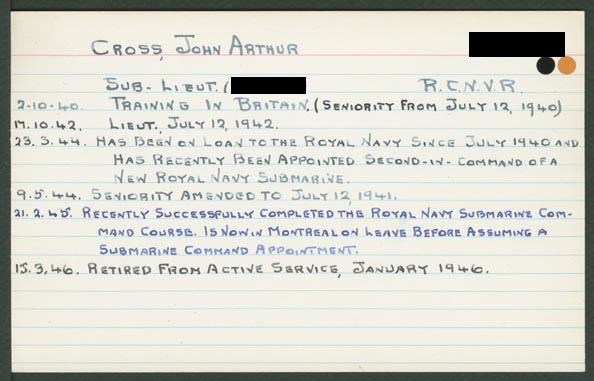 CROSS, JOHN ARTHUR
SUB-LIEUT. (
R.C.N.V.R.
2-10-40. TRAINING IN BRITAIN. (SENIORITY FROM JULY 12, 1940)
17.10.42. LIEUT., JULY 12, 1942.
23.3.44. HAS BEEN ON LOAN TO THE ROYAL NAVY SINCE JULY 1940 AND
HAS RECENTLY BEEN APPOINTED SECOND-IN-COMMAND OF A
NEW ROYAL NAVY SUBMARINE.
9.5.44. SENIORITY AMENDED TO JULY 12, 1941.
21.2.45. RECENTLY SUCCESSFULLY COMPLETED THE ROYAL NAVY SUBMARINE COM-
MAND COURSE. IS NOW IN MONTREAL ON LEAVE BEFORE ASSUMING A
SUBMARINE COMMAND APPOINTMENT.
15.3.46. RETIRED FROM ACTIVE SERVICE, JANUARY 1946.